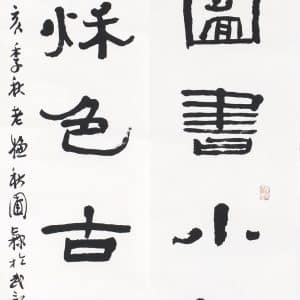 圖書小
秌色古
亥季秋老秋圃於武